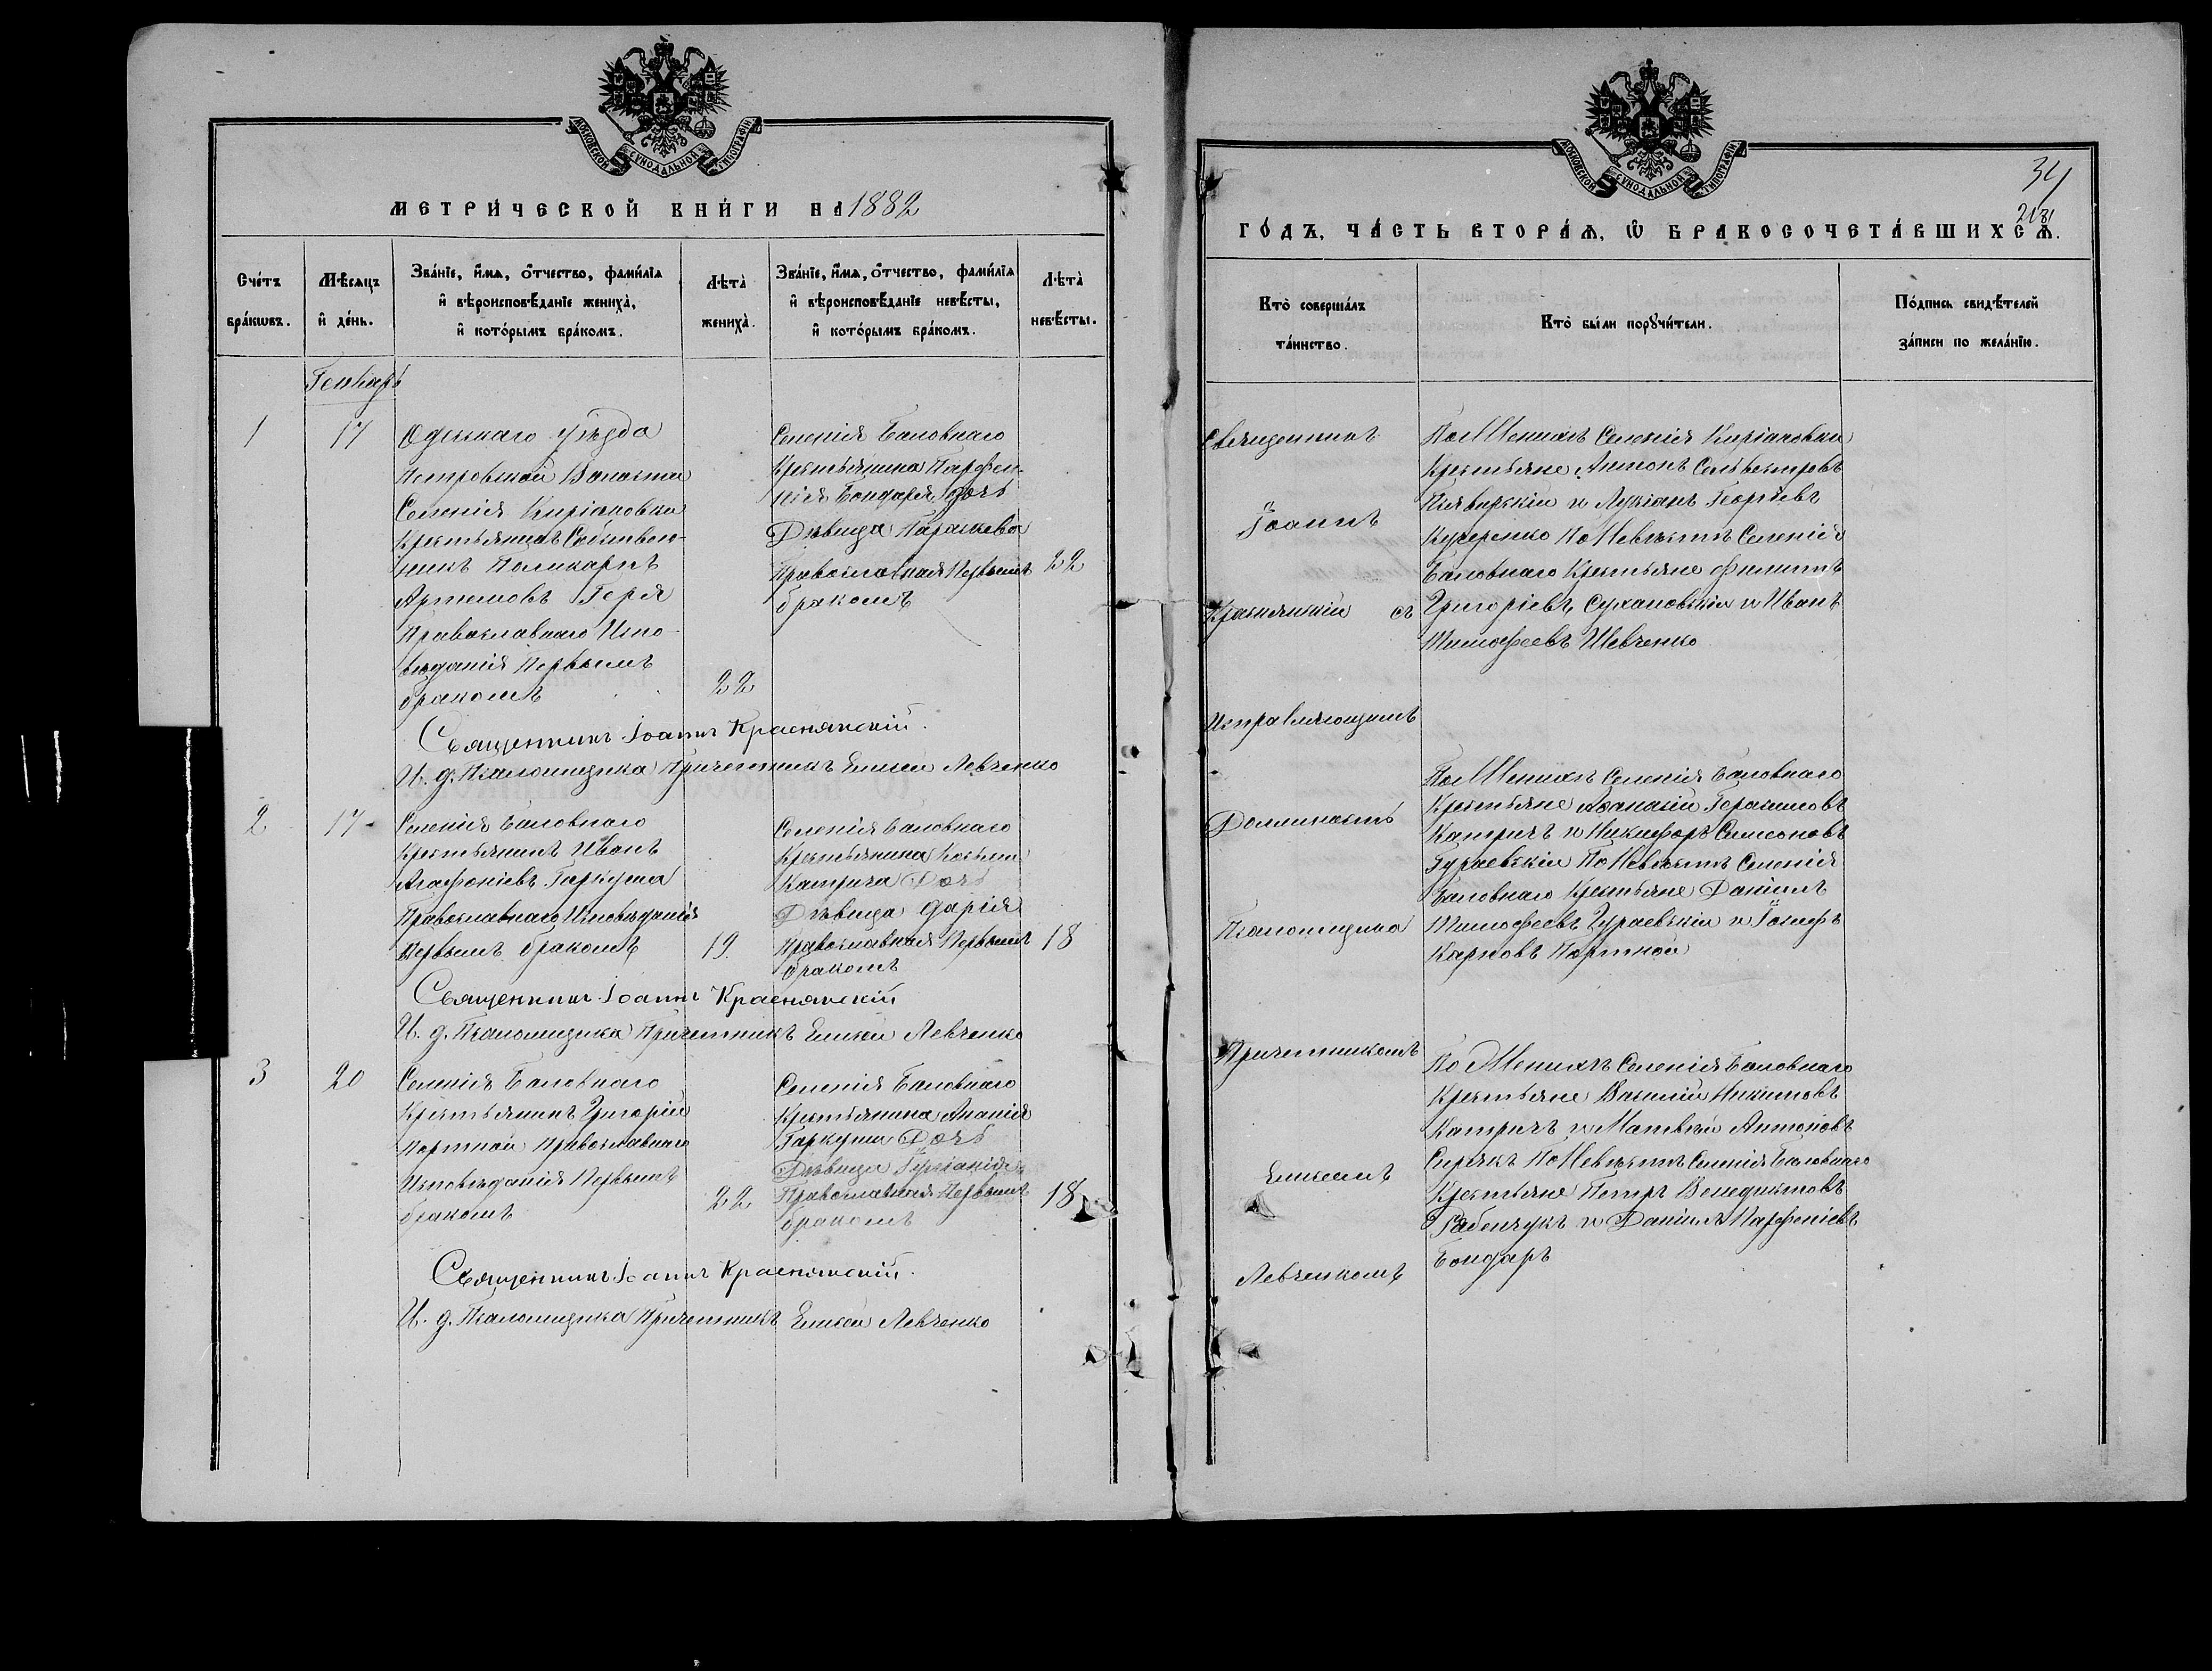 МОСКОВСКОЙ СУНОДАЛЬНОЙ ТИПОГРАФІИ
МЕТРИ́ЧЕСКОЙ КНИ́ГИ НА 1882
Сче́тъ бра́кѡвъ.
Мѣ́сѧцъ и҆ де́нь.
Зва́нїе, и҆́мѧ, ѻ҆́тчество, фами́лїѧ
и҆ вѣроисповѣ́данїе жениха̀,
и҆ кото́рымъ бра́комъ.
Лѣта̀ жениха̀.
Зва́нїе, и҆́мѧ, ѻ҆́тчество, фами́лїѧ
и҆ вѣроисповѣ́данїе невѣ́сты,
и҆ кото́рымъ бра́комъ.
Лѣта̀ невѣ́сты.
Генварь
1
17
Одесскаго уѣзда
Петровской Волости
Селенія Киріаковки
Крестьянинъ Собствен-
никъ Поликарпъ
Артемовъ Геря
Православнаго Испо-
вѣданія Первымъ
бракомъ
22
Селенія Баловнаго
Крестьянина Парфен-
нія Бондаря дочь
Дѣвица Параскева
Православная Первымъ
бракомъ
22
Священникъ Іоаннъ Краснянскій.
И. д. Псаломщика Причетникъ Елисей Левченко
2
17
Селенія Баловнаго
Крестьянинъ Иванъ
Агафоніевъ Гаркуша
Православнаго Исповѣданія
Первымъ бракомъ
19.
Селенія Баловнаго
Крестьянина Косьмы
Катрича Дочь
Дѣвица Дарія
Православная Первымъ
бракомъ
18
Священникъ Іоаннъ Краснянскій
И. д. Псаломщика Причетникъ Елисей Левченко
3
20
Селенія Баловнаго
Крестьянинъ Григорій
Портной Православнаго
Исповѣданія Первымъ
бракомъ
22
Селенія Баловнаго
Крестьянина Ананія
Гаркуши Дочь
Дѣвица
Православная Первымъ
бракомъ
18
Священникъ Іоаннъ Краснянскій.
И. д. Псаломщика Причетникъ Елисей Левченко
МОСКОВСКОЙ СУНОДАЛЬНОЙ ТИПОГРАФІИ
34
ГО́ДЪ, ЧА́СТЬ ВТОРА́Ѧ, Ѡ҆ БРАКОСОЧЕТА́ВШИХСѦ.
Кто̀ соверша́лъ
та́инство.
Кто̀ бы́ли порꙋчи́тели.
По́дпись свидѣ́телей
за́писи по жела́нїю.
Священникъ
Іоаннъ
Краснянскій съ
Исправляющимъ
Должность
Псаломщика
Причетникомъ
Елисеемъ
Левченкомъ
По Женихѣ Селенія Киріаковки
Крестьяне Антонъ Сильвестровъ
и Лукіанъ Георгіевъ
Кучеренко По Невѣстѣ Селенія
Баловнаго Крестьяне Филиппъ
Григоріевъ Сухановскій и Иванъ
Тимофеевъ Шевченко
По Женихѣ Селенія Баловнаго
Крестьяне Афанасій Герасимовъ
Катричъ и Никифоръ Симеоновъ
Гураевскій По Невѣстѣ Селенія
Баловнаго Крестьяне Даніилъ
Тимофеевъ Гураевскій и Іосифъ
Карповъ Портной
По Женихѣ Селенія Баловнаго
Крестьяне Василій Никитовъ
Катричъ и Матвѣй Антоновъ
По Невѣстѣ Селенія Баловнаго
Крестьяне Петръ Венедиктовъ
Рябенчукъ и Даніилъ Парфеніевъ
Бондарь